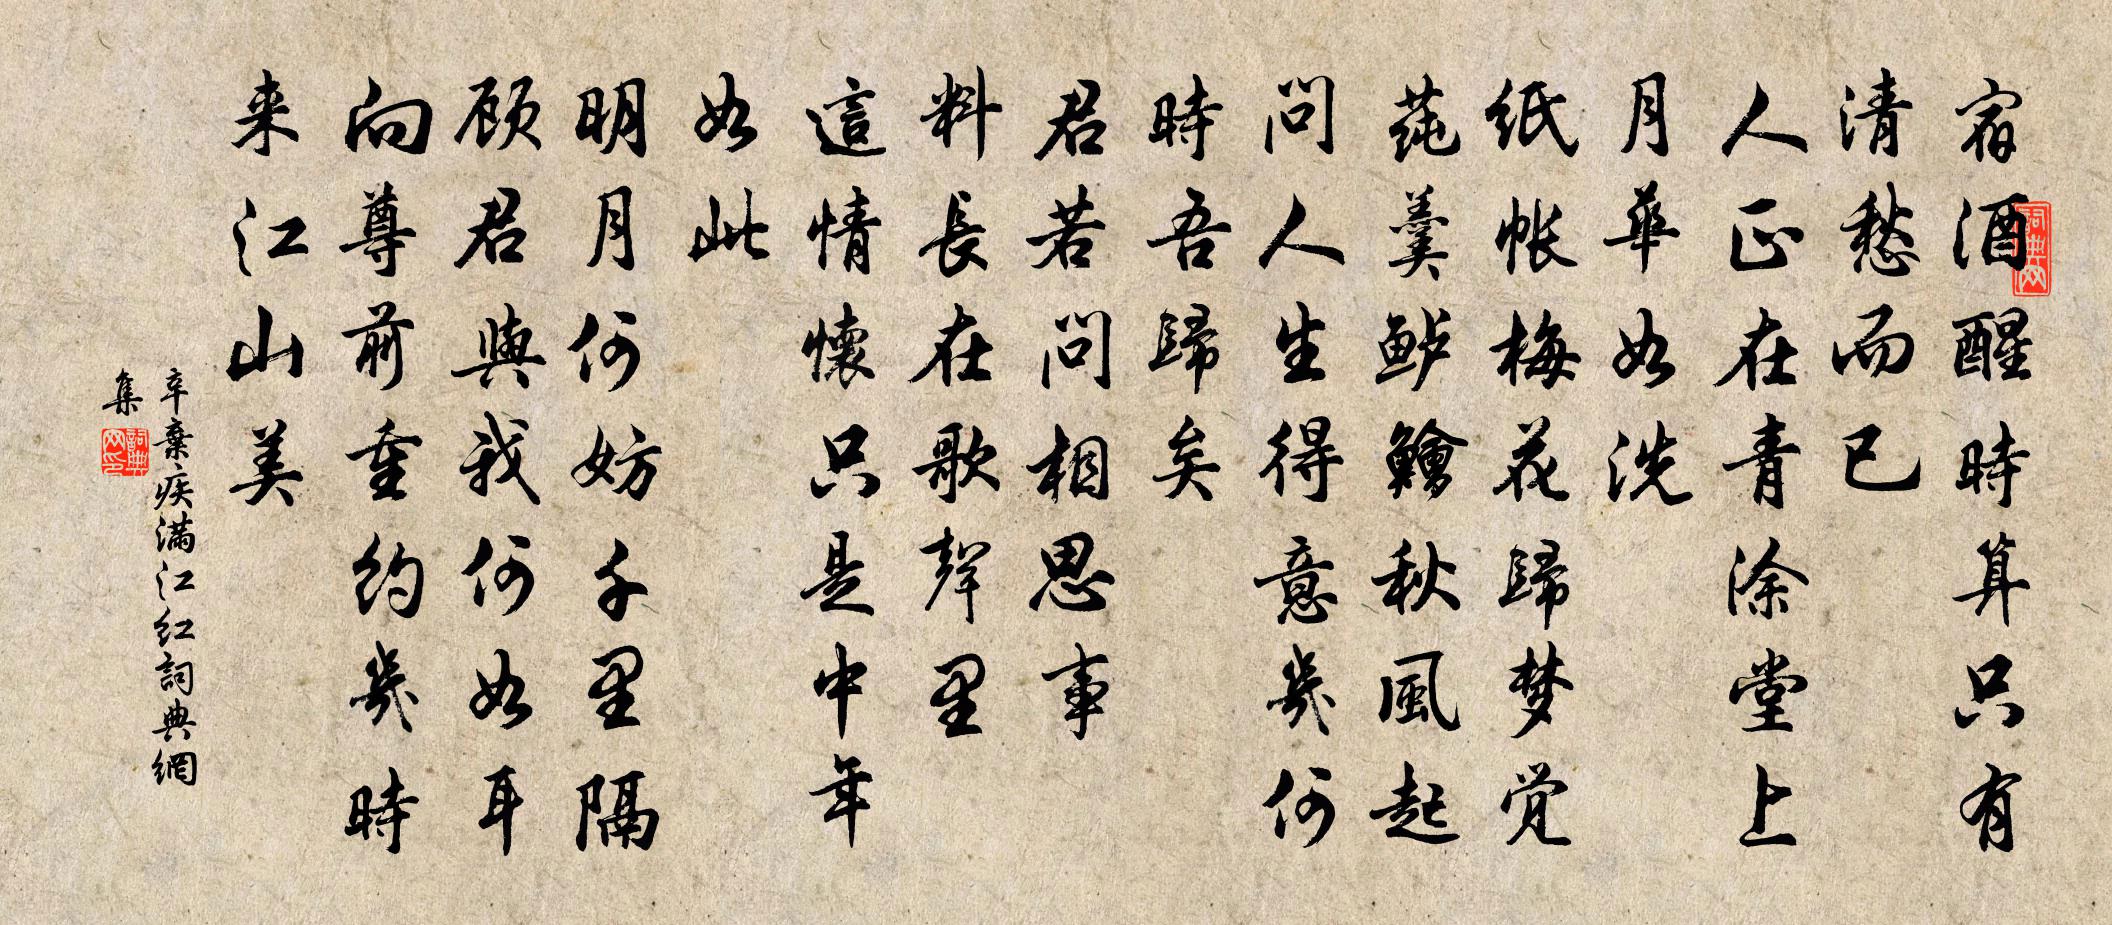 宿酒醒時算只有
清愁而已
人正在青涂堂上
月華如洗
紙帐梅花歸梦觉
莼羹鲈鱠秋風起
问人生得意幾何
時吾歸矣
君若问相思事
料長在歌聲里
這情懷只是中年
如此
明月何妨千里隔
顾君與我何如耳
向尊前重约幾時
来江山美
辛棄疾满江红詞典網
集
詞典网
詞典网印